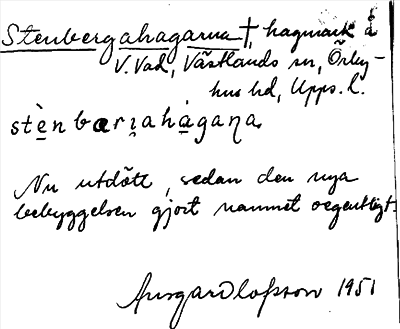 Stenbergahagarna †, hagmark å
V. Vad, Västlands sn, Örby-
hus hd, Upps. l.
stè̱nbari̯ahȧ̱gaɳa
Nu utdött, sedan den nya
bebyggelsen gjort namnet oegentligt.
Ansgar Olofsson 1951